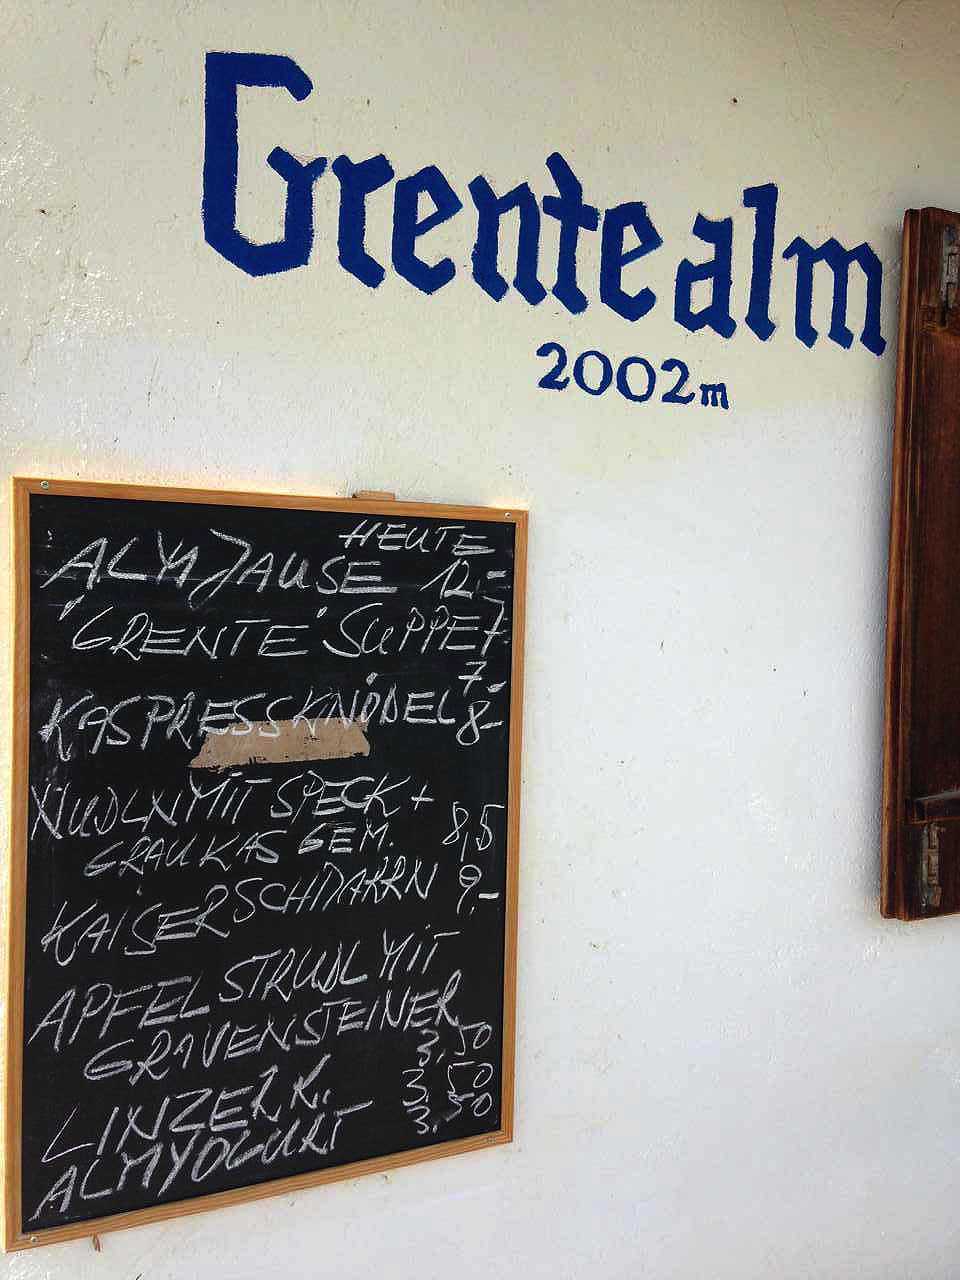 Grentealm
2002m
HEUTE
ALMJAUSE 12.-
"GRENTE" SUPPE 7.-
7.-
KASPRESSKNÖDEL 8.-
NUDLN MIT SPECK +
GRAUKAS GEM. 8,5
KAISERSCHMARRN 9.-
APFELSTRUDL MIT
GRAVENSTEINER 3.50
LINZER K. 3.50
ALMYOGURT 3.50